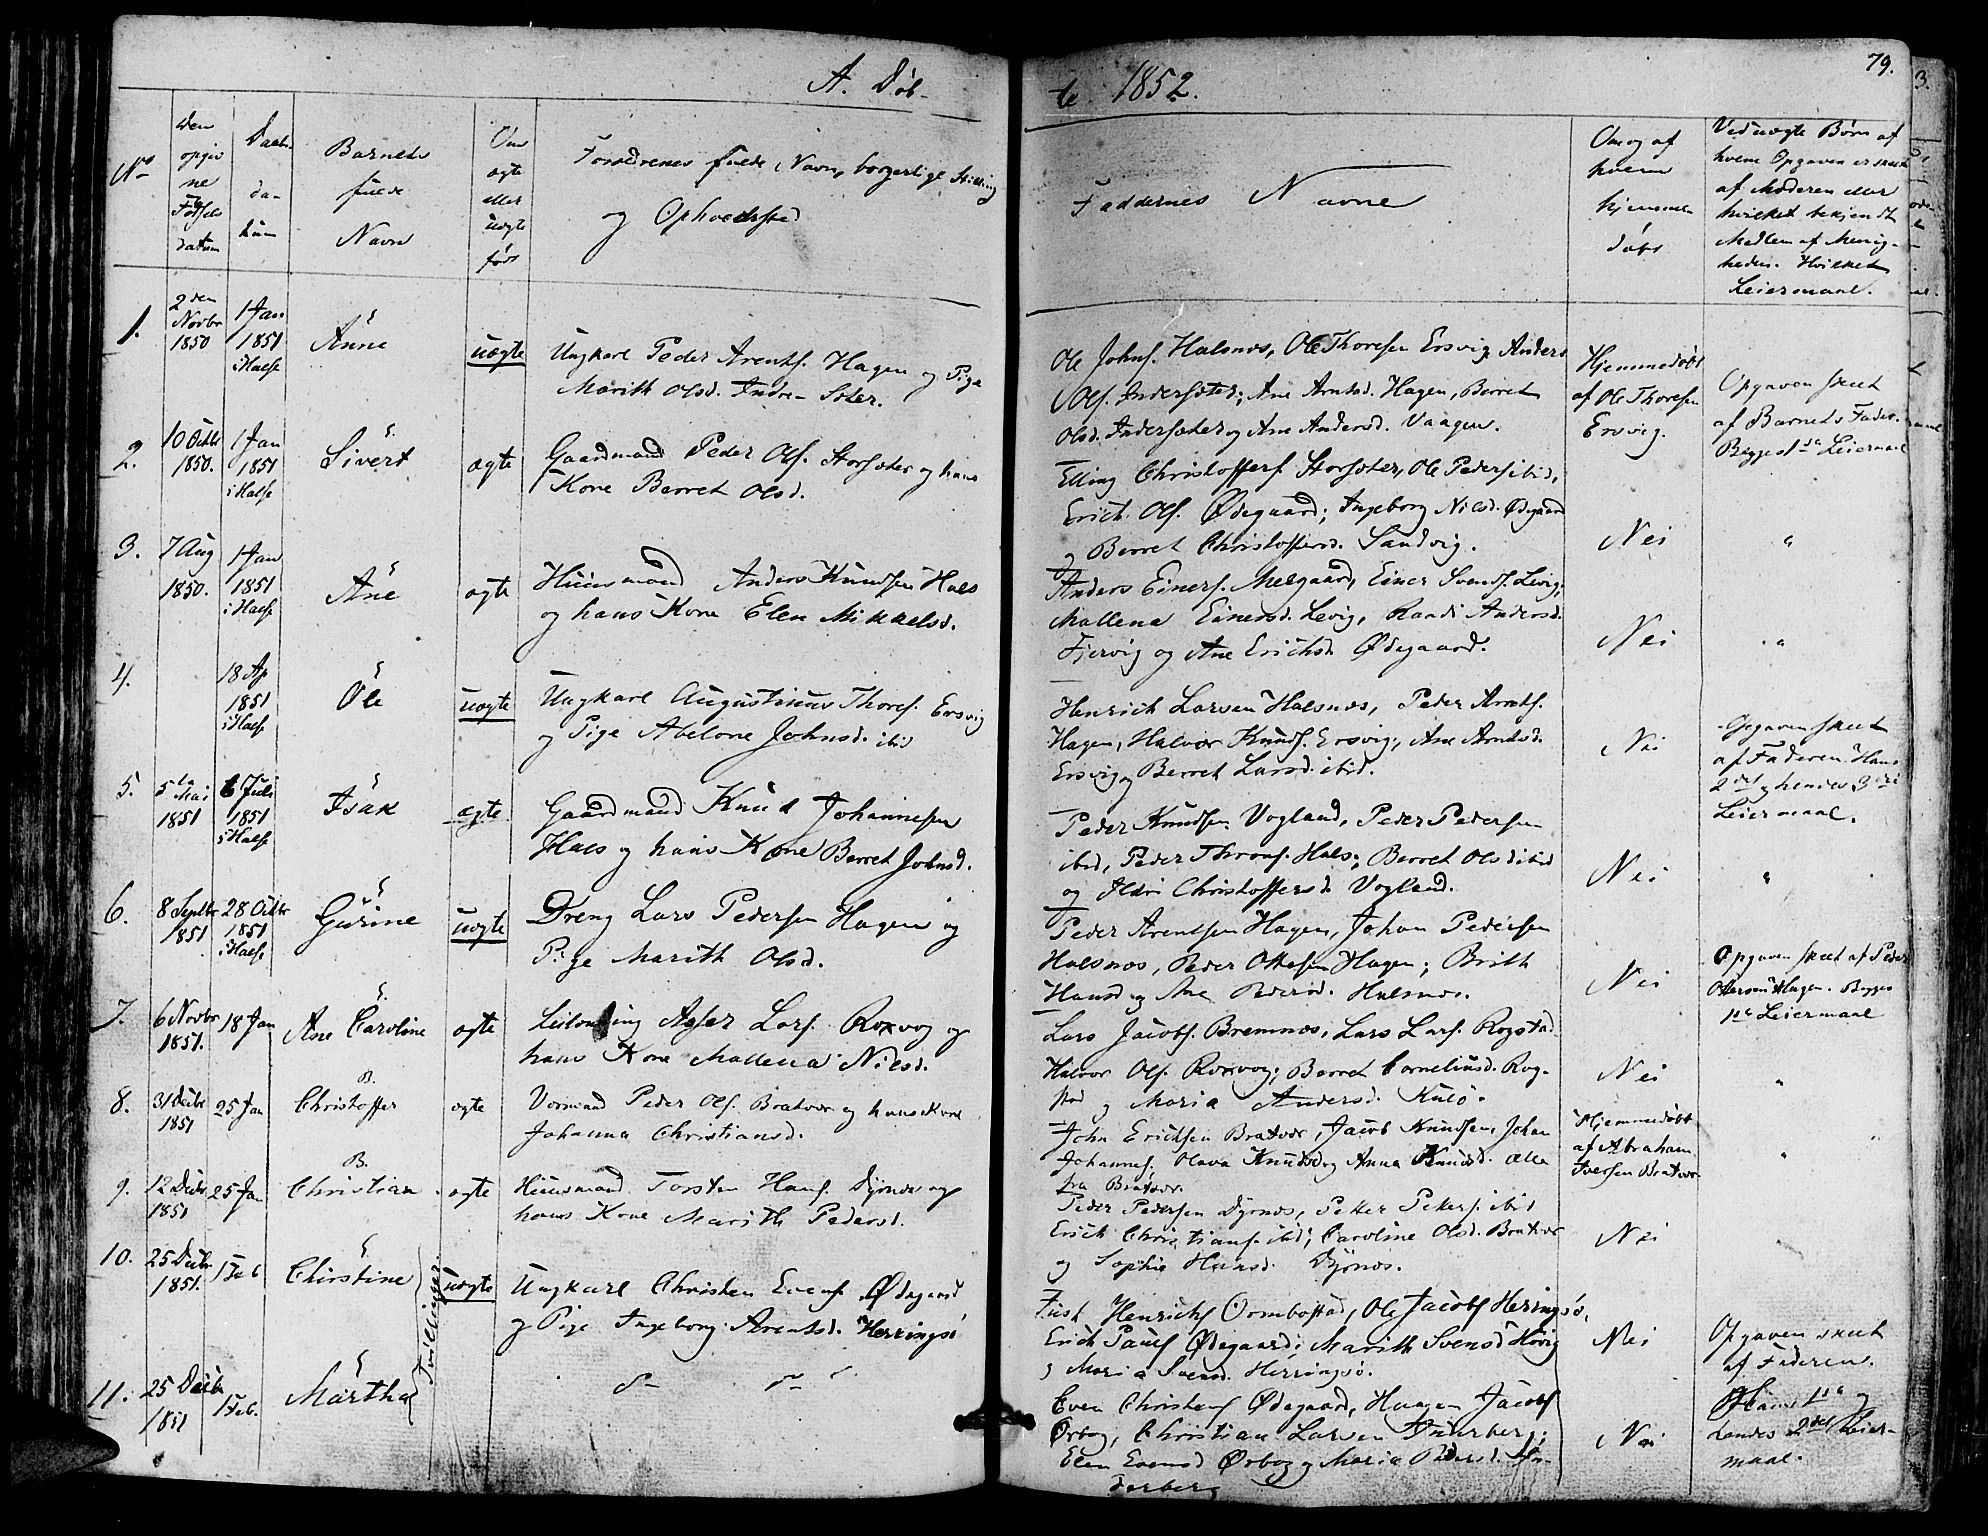 A. Døb-
te 1852.
79.
No
Den
opgiv
ne
Fødsels
datum
Daabs
da-
tum
Barnets
fulde
Navn
Om
ægte
eller
uægte
født
Forældrenes fulde Navn, borgerlige Stilling
og Opholdssted
Faddernes Navne
Om og af
hvem
hjemme-
døbt
Ved uægte Børn af
hvem Opgaven er skeet
af Moderen eller
hvilket bekjendt
Medlem af Menig-
heden. Hvilket
Leiermaal.
1.
2den
Novbr
1850
1 Jan
1851
i Halse
Ane
uægte
Ungkarl Peder Arents. Hagen og Pige
Marith Olsd. Indre-Sæter.
Ole Johns. Halsnæs, Ole Thoresen Ersvig, Anders
Ols. Indersæter; Ane Arntsd. Hagen, Berret
Olsd. Indersæter og Ane Andersd. Vaagen.
Hjemmedøbt
af Ole Thoresen
Ersvig.
Opgaven skeet
af Barnets Fader.
Begges 1ste Leiermaal
2.
10 Octbr
1850.
1 Jan
1851
i Halse
Sivert
ægte
Gaardmand Peder Ols. Storsæter og hans
Kone Berret Olsd.
Elling Christoffers. Storsæter, Ole Peders. ibid,
Erich Ols. Ødegaard; Ingeborg Nilsd. Ødegaard
og Berret Christoffersd. Sandvig.
Nei
"
3.
7 Aug
1850.
1 Jan
1851
i Halse
Ane
ægte
Huusmand Anders Knudsen Hals
og hans Kone Elen Mikkelsd.
Anders Einers. Melgaard, Einer Svends. Levig,
Mallena Einersd. Levig, Randi Andersd.
Fjervig og Ane Erichsd. Ødegaard.
Nei
"
4.
18 Ap
1851
i Halse
Ole
uægte
Ungkarl Augustinus Thores. Ersvig
og Pige Abelone Johnsd. ibid
Henrich Larsen Halsnæs, Peder Arnts.
Hagen, Halvor Knuds. Ersvig, Ane Arntsd.
Ersvig og Berret Larsd. ibid.
Nei
Opgaven skeet
af Faderen. Hans
2det og hendes 3die
Leiermaal.
5.
5te Mai
1851
6 Juli
1851
i Halse
Isak
ægte
Gaardmand Knud Johannesen
Hals og hans Kone Berret Johnsd.
Peder Knudsen Vogland, Peder Pedersen
ibid, Peder Throns. Hals; Berret Olsd ibid
og Ildri Christoffersd. Vogland.
Nei
"
6.
8 Septbr
1851
28 Octbr
1851
i Halse
Gurine
uægte
Dreng Lars Pedersen Hagen og
Pige Marith Olsd.
Peder Arentsen Hagen, Johan Pedersen
Halsnæs, Peder Ottesen Hagen; Brith
Hansd og Ane Pedersd. Halsnæs.
Nei
Opgaven skeet af Peder
Ottersen Hagen. Begges
1ste Leiermaal
7.
6 Novbr
1851.
18 Jan
Ane Caroline
ægte
Leilending Asser Lars. Roxvog og
hans Kone Mallena Nilsd.
Lars Jacobs. Bremnæs, Lars Lars. Rogstad
Halvor Ols. Roxvog; Berret Corneliusd. Rog-
stad og Maria Andersd. Kulø.
Nei
"
8.
31 Decbr
1851
25 Jan
Christoffer
ægte
Vormand Peder Ols. Bratvær og hans Kone
Johanna Christiansd.
John Erichsen Bratvær, Jacob Knudsen, Johan
Johannes. Olava Knudsd og Anna Knudsd. alle
fra Bratvær.
Hjemmedøbt
af Abraham
Iversen Bratvær
"
9.
12 Decbr
1851
25 Jan
Christian
ægte
Huusmand Torsten Hans. Dyrnæs og
hans Kone Marith Pedersd.
Peder Pedersen Dyrnæs, Petter Petters. ibid
Erich Christians. ibid; Caroline Olsd. Bratvær
og Sophie Hansd. Dyrnæs.
Nei
10.
25 Decbr
1851.
1 Feb
Chirstine
Tvillinger
uægte
Ungkarl Christen Evens. Ødegaard
og Pige Ingeborg Arentsd. Herringsø
Just Henrichs Ormbostad, Ole Jacobs Herringsø,
Erich Pauls Ødegaard; Marith Svensd Høvig
og Maria Svensd. Herringsø.
Nei
Opgaven skeet
af Faderen.
11.
25 Decbr
1851
1 Feb.
Martha
Even Christens Ødegaard, Haagen Jacobs
Ørbog, Christian Larsen Inderberg;
Elen Evensd Ørbog og Maria Pedersd. In-
derberg
Nei
Hans 1ste og
hendes 2det Leier-
maal.